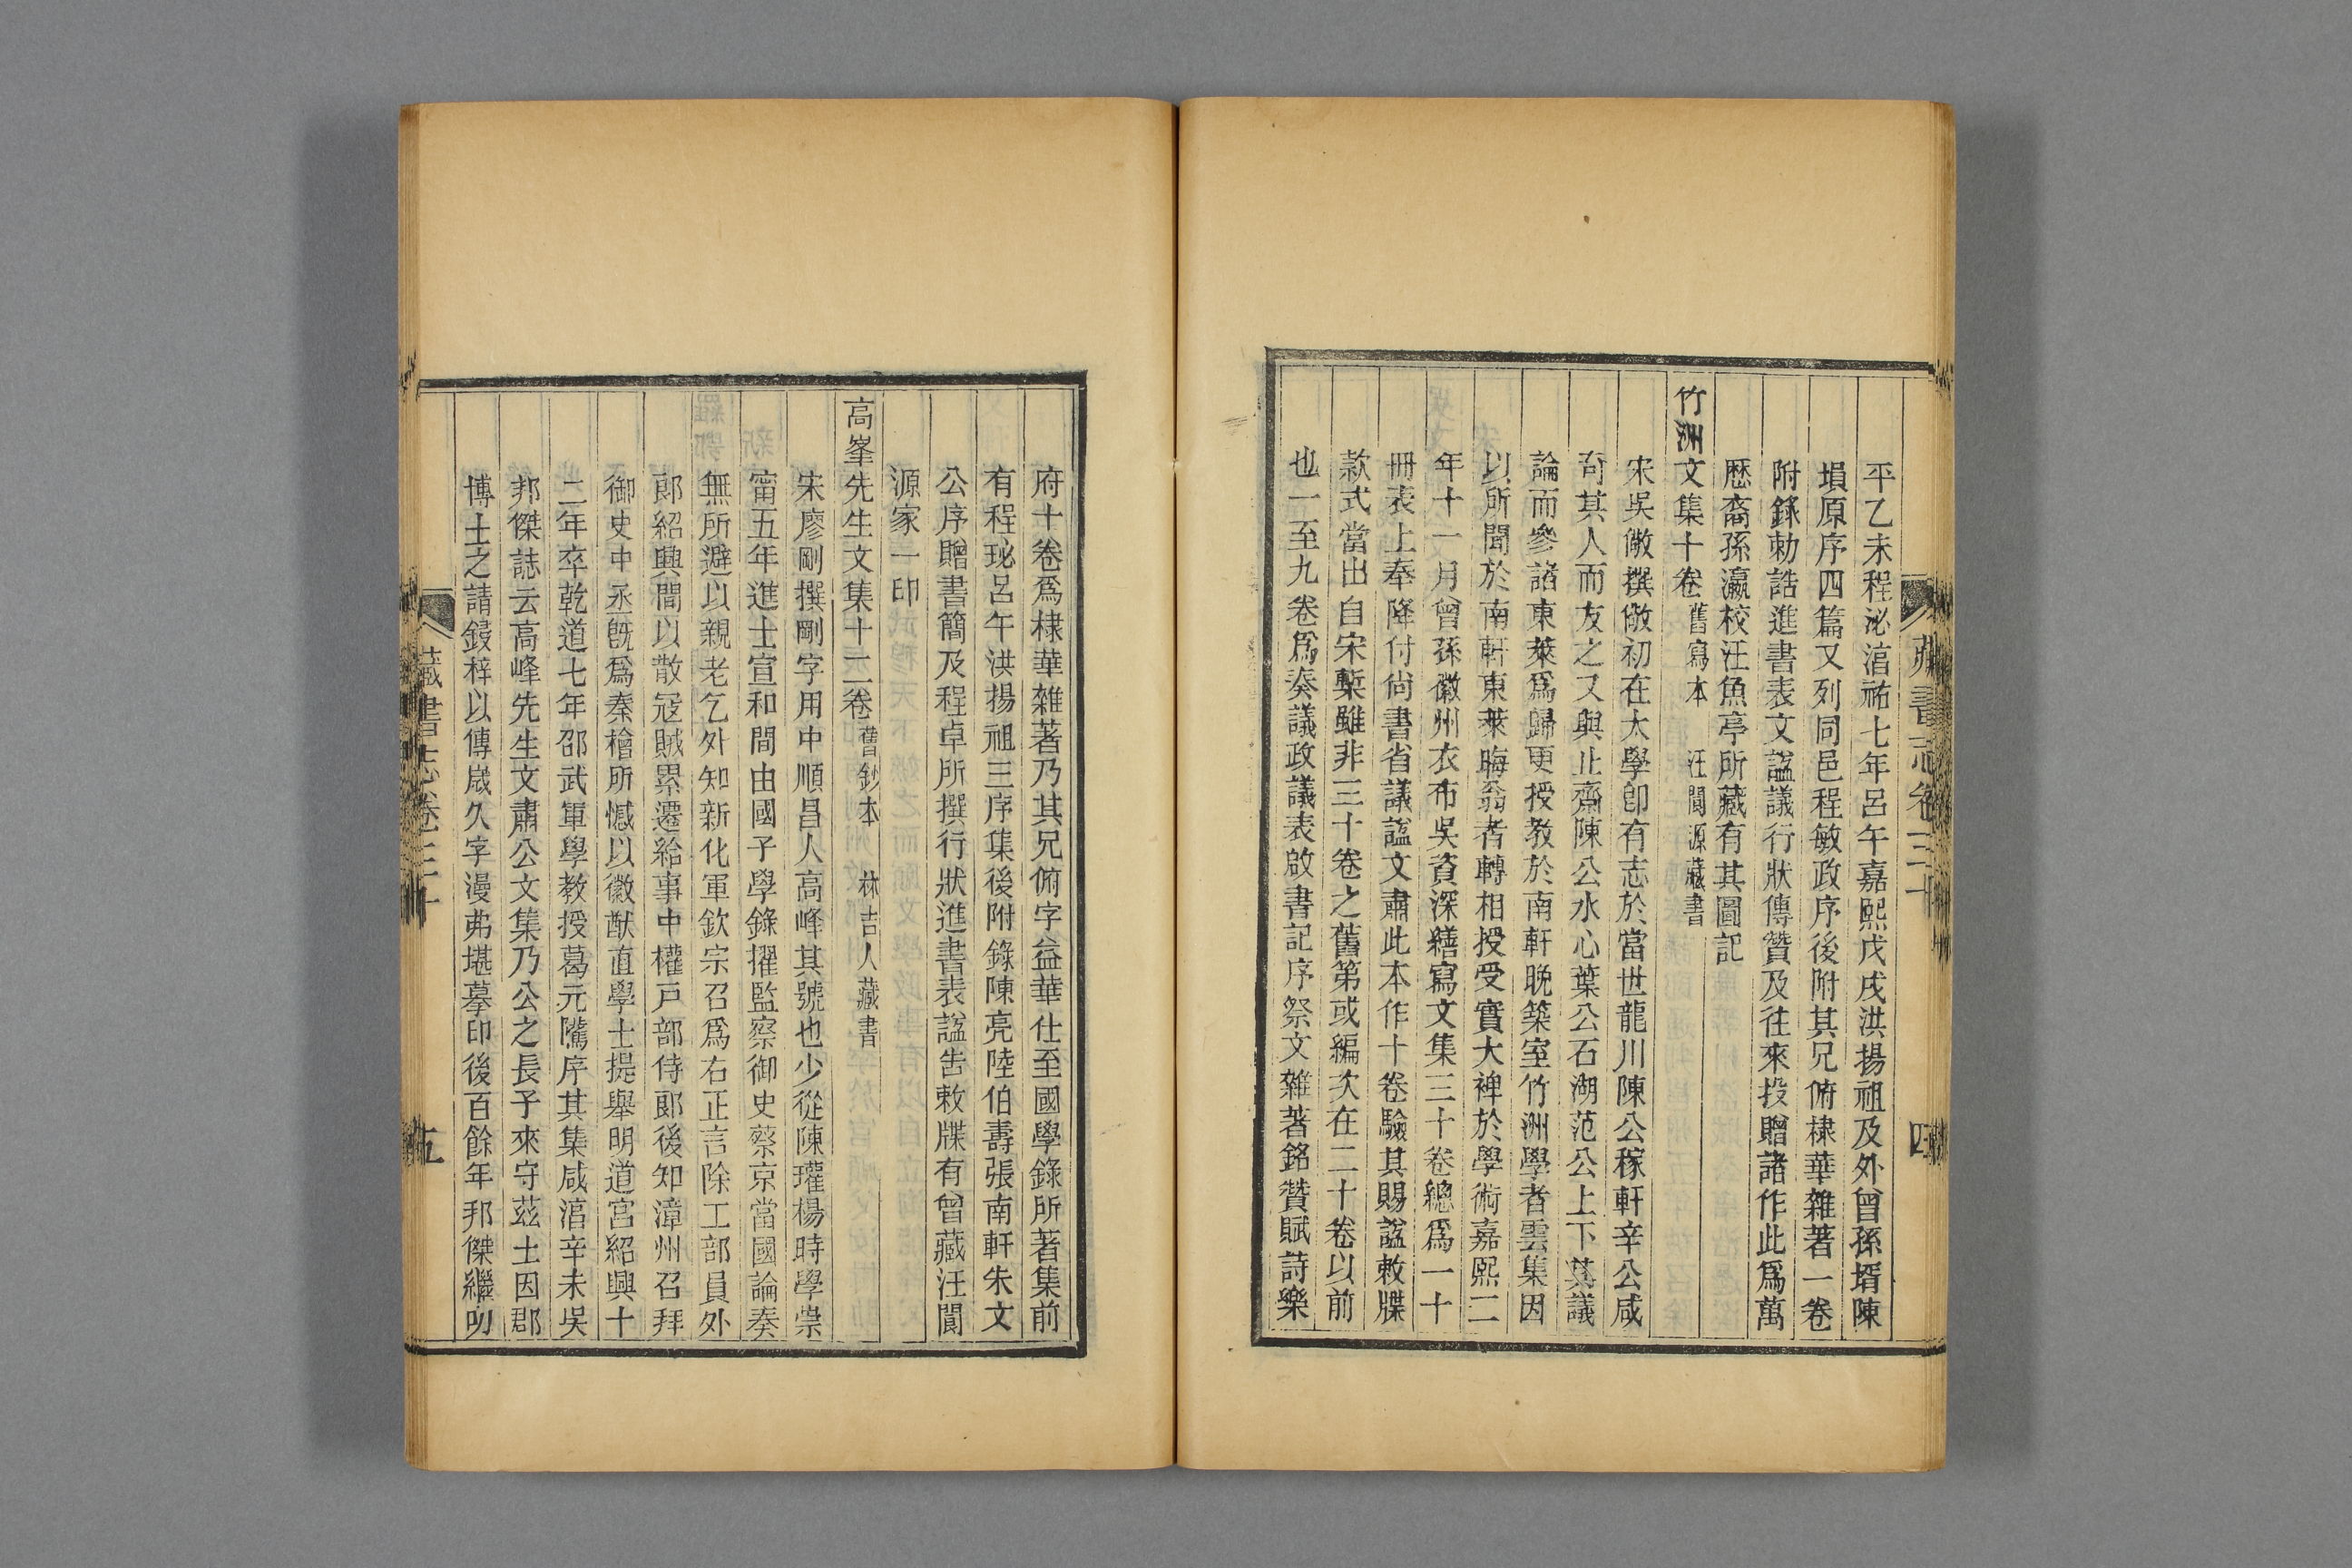 藏書志卷三十
四
平乙未程泌湻祐七年呂午嘉熙戊戌洪揚祖及外曾孫壻陳
塤原序四篇又列同邑程敏政序後附其兄俯棣華雜著一卷
附錄勅誥進書表文諡議行狀傳贊及往來投贈諸作此爲萬
歷裔孫瀛校汪魚亭所藏有其圖記
竹洲文集十卷 舊寫本 汪閬源藏書
宋吳儆撰儆初在太學卽有志於當世龍川陳公稼軒辛公咸
奇其人而友之又與止齋陳公水心葉公石湖范公上下其議
論而參諸東萊爲歸更授教於南軒晚築室竹洲學者雲集因
以所聞於南軒東萊晦翁者轉相授受實大裨於學術嘉熙二
年十一月曾孫徽州衣布吳資深繕寫文集三十卷總爲一十
冊表上奉降付尙書省議諡文肅此本作十卷驗其賜諡敕牒
款式當出自宋槧雖非三十卷之舊第或編次在二十卷以前
也一至九卷爲奏議政議表啟書記序祭文雜著銘贊賦詩樂
府十卷爲棣華雜著乃其兄俯字益華仕至國學錄所著集前
有程珌呂午洪揚祖三序集後附錄陳亮陸伯壽張南軒朱文
公序贈書簡及程卓所撰行狀進書表諡告敕牒有曾藏汪閬
源家一印
高峯先生文集十二卷 舊鈔本 林吉人藏書
宋廖剛撰剛字用中順昌人高峰其號也少從陳瓘楊時學崇
甯五年進士宣和間由國子學錄擢監察御史蔡京當國論奏
無所避以親老乞外知新化軍欽宗召爲右正言除工部員外
郎紹興間以散冦賊累遷給事中權戸部侍郎後知漳州召拜
御史中丞旣爲秦檜所憾以徽猷直學士提舉明道宮紹興十
二年卒乾道七年邵武軍學教授葛元隲序其集咸湻辛未吳
邦傑誌云高峰先生文肅公文集乃公之長子來守茲土因郡
博士之請鋟梓以傳歲久字漫弗堪摹印後百餘年邦傑繼叨
藏書志卷三十
五